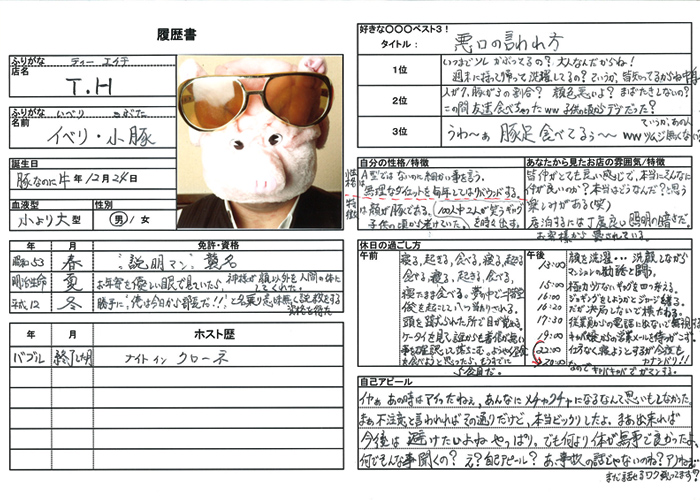 履歴書
ふりがな ティー エイチ
店名 T.H
ふりがな いべり こぶた
名前 イベリ・小豚
誕生日 豚なのに牛年/12月24日
血液型 小より大型 性別 男/女
年 月 免許・資格
昭和53 春 "説明マン"襲名
明治生命 夏 お年寄を優しい眼で見いたら、神様が顔以外を人間の体にしてくれた。
平成12 冬 勝手に「俺は今日から部長だ!!」と名乗り
年 月 ホスト歴
バブル 終了頃 ナイト イン クローネ
好きな〇〇〇ベスト3!
タイトル: 悪口の言われ方
1位 いつまでソレかぶってるの?大人なんだからね!
週末に持って帰って洗濯してるの?ていうか、皆知ってるからね中身
2位 人が7、豚が3の割合? 顔色悪いよ? まばたきしないの?
この間友達食べちゃったww 子供の頃からデブだった?
3位 うわ〜ぁ 豚足食べてるぅ〜 ww
自分の性格/特徴
性格 A型ではないのに細かい事を言う。
無理なダイエットを毎年してはリバウンドする。
特徴 は顔が豚である。(100人中2人が笑うギャグ
子供の頃から老けていた。)を時々出す。
あなたから見たお店の雰囲気/特徴
皆仲がとても良い感じで、本当にそんなに
仲が良いのか?本当はどうなんだ?と思う
楽しみがある(笑)
居泊するには丁度良い照明の暗さだ。
お客様から愛されている。
休日の過ごし方
午前
寝る、起きる、食べる、寝る、起きる
食べる、寝る、起きる、食べる、
寝たまま食べる。夢の中で内勤
頭を蹴られた所で目が覚める。
ケータイを見て誰からも着信が無い
午後
13:00 顔を洗濯…洗顔しながら
マンションの勧誘と闘う。
15:00 極力少ないギャグを四つ考える。
16:00 ジョギングをしようかとジャージ着る。
16:20 だが決行しないで横たわる。
17:30 従業員からの電話に出ないで無視する
19:00 キャバ嬢からの営業メールを侍つがこず。
22:00 仕方なく寝ようとするが今夜も
カナシバリ!!
なのでキャバキャバでガマンする。
自己アピール
イヤぁ あの時はアレだねぇ、あんなに メチャクチャになるなんて思いもしなかった。
まぁ 不注意と言われればその通りだけど、本当ビックリしたよ。まぁ出来れば
今後は 避けたいよねやっぱり。でも何より体が無事で良かったよ。
何でそんな事聞くの? え?自己アピール? あ、事故の話じゃないのね?
まだ話せるワク残ってます?